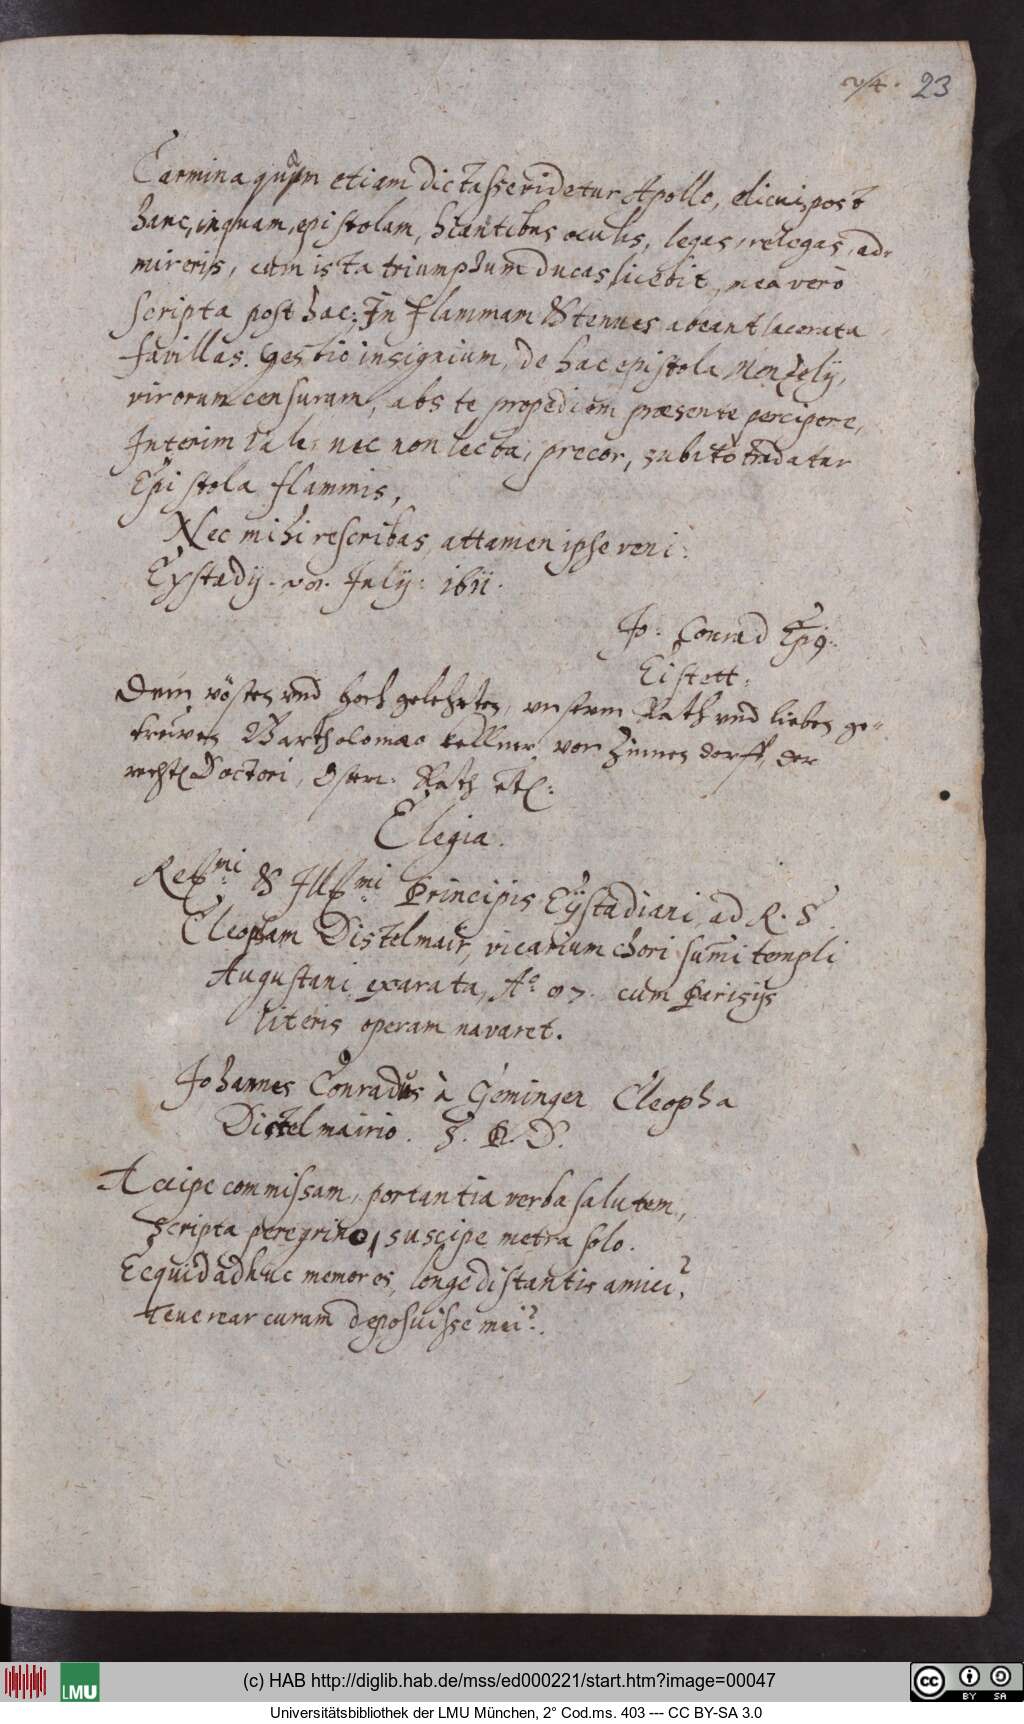 23
Carmina quam etiam dictasse videtur Apollo, elicui, post
hanc, inquam, epistolam, hiantibus oculis, legas, relegas, ad-
mireris, cum ista triumphum ducas licebit, mea verò
scripta post hac: In flammam & tenues abeant lacerata
favillas. Gestio insignium, de hac epistola Menzelij,
virorum censuram, abs te propediem præsente percipere,
Interim vale: nec non lecta, precor, subitò tradatur
Epistola flammis,
Nec mihi rescribas attamen ipse veni:
Eystadij. July: 1611.
Jo: Conrad Epūs:
Eistett:
Dem vösten und hoch gelehrten, unserm Rath und lieben ge-
treuwen Bartholomæo kellner von Zinnendorff, der
rechten Doctori, Rath etc:
Elegia.
Reuᵐⁱ & Illᵐⁱ Principis Eÿstadiani, ad R. S
Cleopham Distelmair, vicarium chori sum̄i templi
Augustani exarata, Aᵒ 87. cum Parisijs
literis operam navaret.
Johannes Conradus à Gemingen Cleophæ
Distelmairio. S. P. D.
Accipe commissam, portantia verba salutem,
Scripta peregrino, suscipe metra solo.
Ecquid adhuc memor es, longe distantis amici?
Te verear curam deposuisse mei?
(c) HAB http://diglib.hab.de/mss/ed000221/start.htm?image=00047
LMU
cc BY SA
Universitätsbibliothek der LMU München, 2° Cod.ms. 403 --- CC BY-SA 3.0